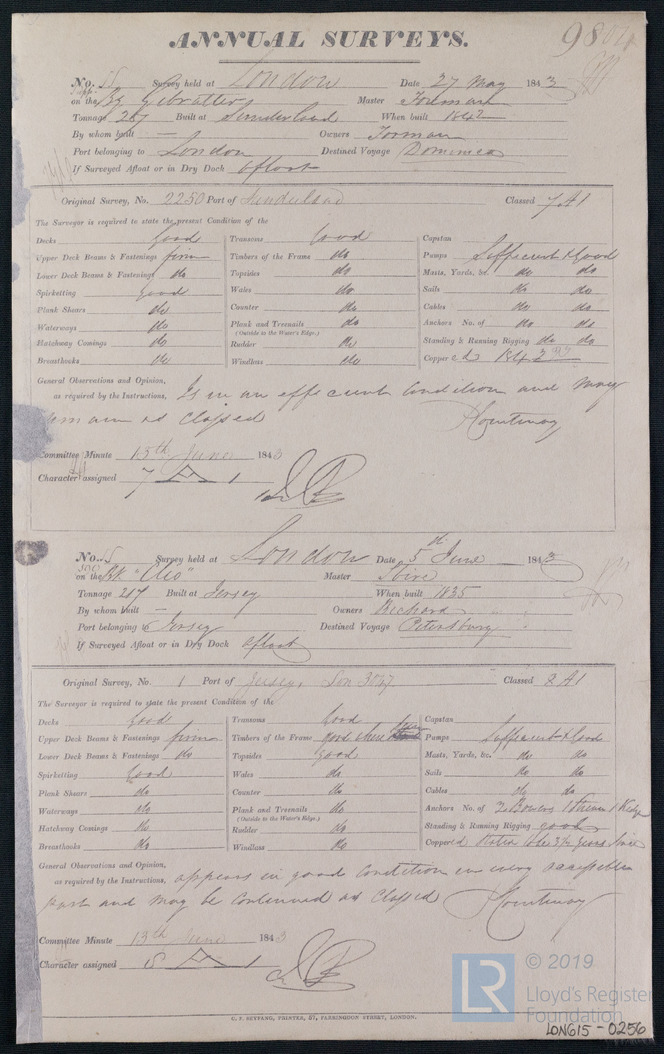 ANNUAL SURVEYS.
No. 55 Survey held at London Date 27 May 1843
on the Bg Gibraltar Master Forman
Tonnage 267 Built at Sunderland When built 1842
By whom built — Owners Forman
Port belonging to London Destined Voyage Dominica
If Surveyed Afloat or in Dry Dock Afloat
Original Survey, No. 2250 Port of Sunderland Classed 7 A1
The Surveyor is required to state the present Condition of the
Decks Good Transoms Good Capstan
Upper Deck Beams & Fastenings firm Timbers of the Frame do Pumps Sufficient & Good
Lower Deck Beams & Fastenings do Topsides do Masts, Yards, &c. do do
Spirketting good Wales do Sails do do
Plank Shears do Counter do Cables do do
Waterways do Plank and Treenails do Anchors No. of do do
(Outside to the Water's Edge.)
Hatchway Comings do Rudder do Standing & Running Rigging do do
Breasthooks do Windlass do Copper ed 1842
General Observations and Opinion,
as required by the Instructions, Is in an efficient Condition and may
remain as Classed
Courtenay
Committee Minute 15th June 1843
Character assigned 7 A 1
No. 5 Survey held at London Date 5th June 1843
on the Bk "Cleo" Master
Tonnage 217 Built at Jersey When built 1835
By whom built — Owners Richard
Port belonging to Jersey Destined Voyage Petersburg
If Surveyed Afloat or in Dry Dock afloat
Original Survey, No. 1 Port of Jersey, Lon Classed 8 A1
The Surveyor is required to state the present Condition of the
Decks Good Transoms Good Capstan
Upper Deck Beams & Fastenings firm Timbers of the Frame good where seen Pumps Sufficient & Good
Lower Deck Beams & Fastenings do Topsides good Masts, Yards, &c. do do
Spirketting Good Wales do Sails do do
Plank Shears do Counter do Cables do do
Waterways do Plank and Treenails do Anchors No. of 2 Bowers 1 Stream 1 Kedge
(Outside to the Water's Edge.)
Hatchway Comings do Rudder do Standing & Running Rigging good
Breasthooks do Windlass do Coppered
General Observations and Opinion,
as required by the Instructions, appears in good Condition in every accessible
part and may be continued as Classed Courtenay
Committee Minute 13th June 1843
Character assigned 8 A 1
© 2019
LR Lloyd's Register
Foundation
C. F. SEYFANG, PRINTER, 57, FARRINGDON STREET, LONDON.
LON615-0256